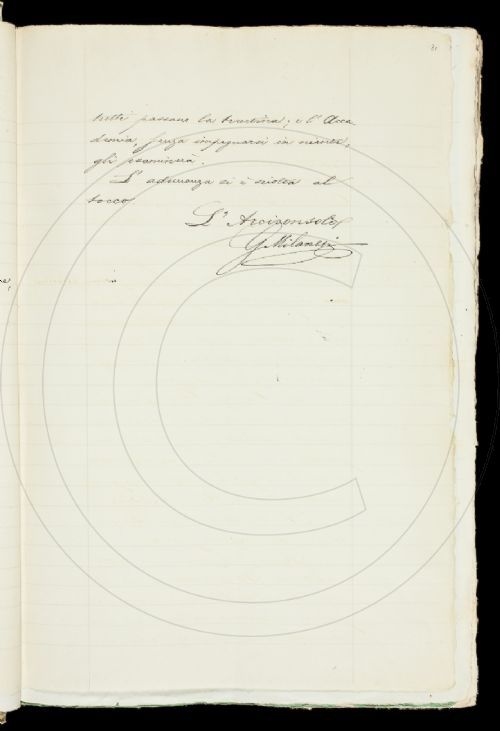 tutti passano la trentina; e l'Acca-
demia, senza impegnarsi in niente,
gli esaminerà.
L'adunanza si è sciolta al
tocco.
L'Arciconsolo
G. Milanesi